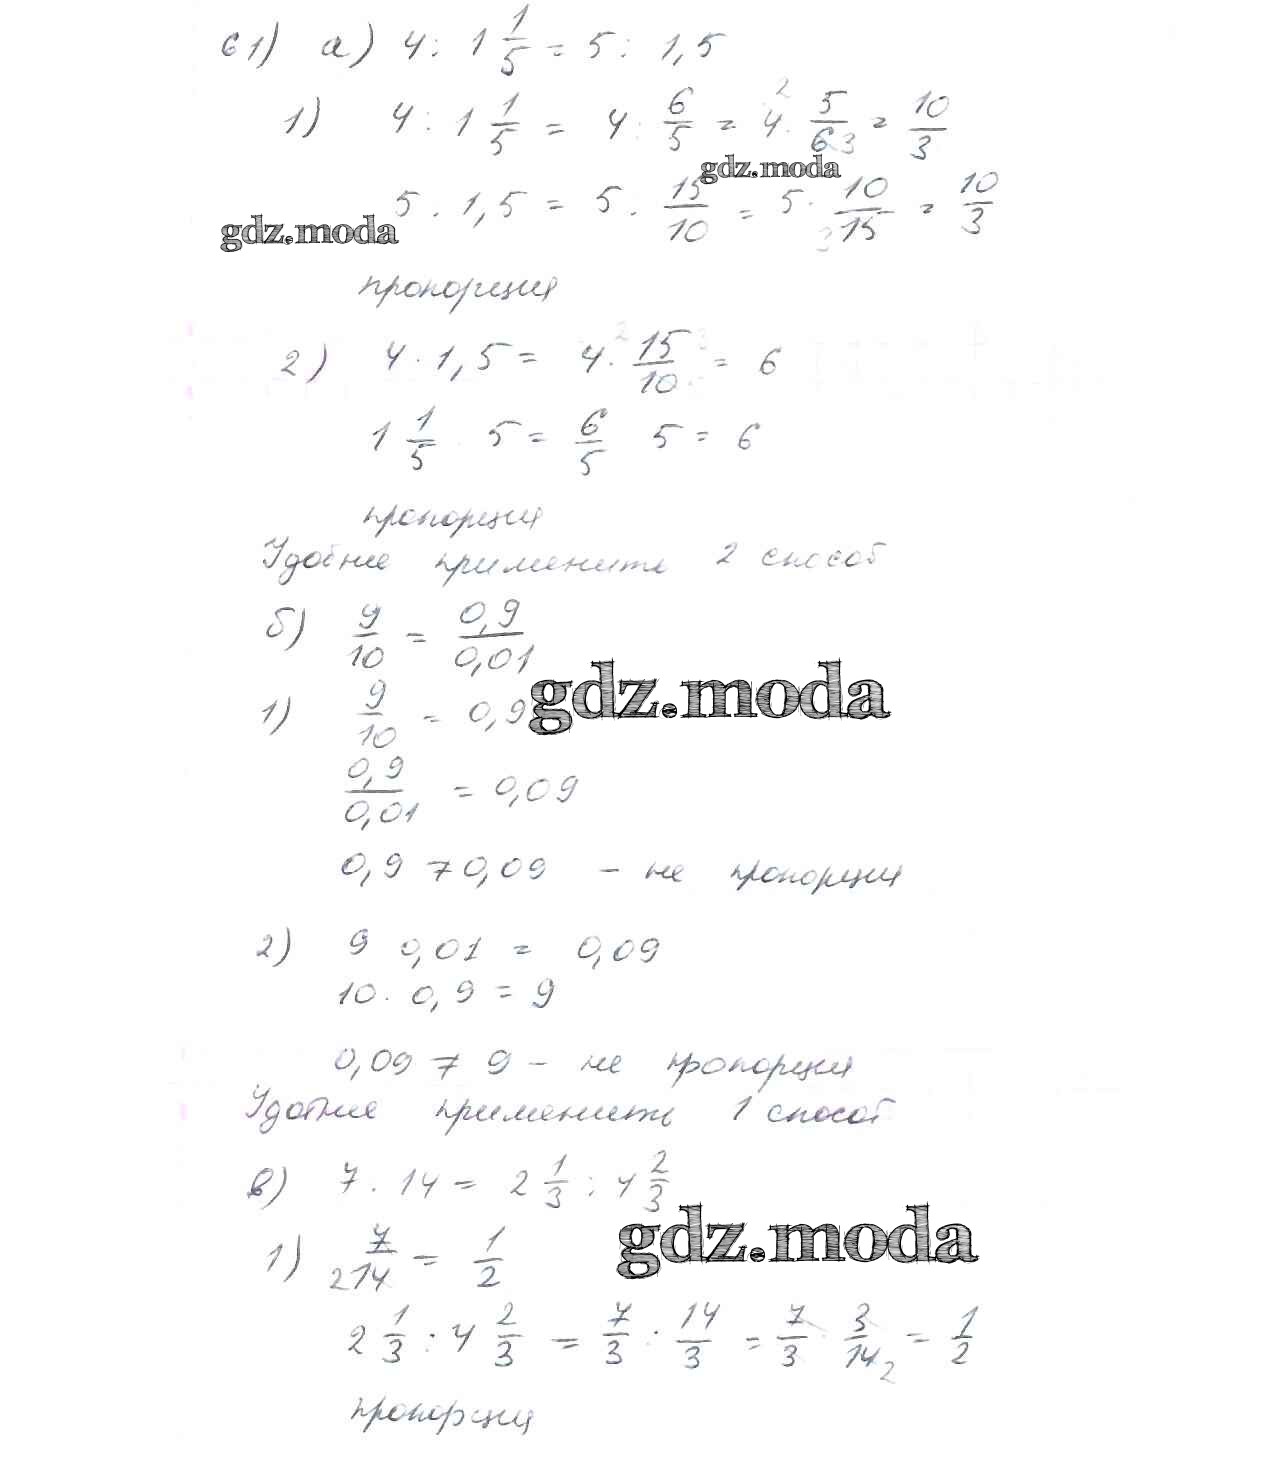 61) а) 4 : 1 1/5 = 5 : 1,5
1) 4 : 1 1/5 = 4 : 6/5 = 4 · 5/6 = 10/3
gdz.moda
5 : 1,5 = 5 : 15/10 = 5 · 10/15 = 10/3
gdz.moda
пропорция
2) 4 · 1,5 = 4 · 15/10 = 6
1 1/5 · 5 = 6/5 5 = 6
пропорция
Удобнее применить 2 способ
б) 9/10 = 0,9/0,01
gdz.moda
1) 9/10 = 0,9
0,9/0,01 = 0,09
0,9 ≠ 0,09 – не пропорция
2) 9 0,01 = 0,09
10 · 0,9 = 9
0,09 ≠ 9 – не пропорция
Удобнее применить 1 способ
в) 7 : 14 = 2 1/3 : 4 2/3
gdz.moda
1) 7/14 = 1/2
2 1/3 : 4 2/3 = 7/3 : 14/3 = 7/3 · 3/14 = 1/2
пропорция